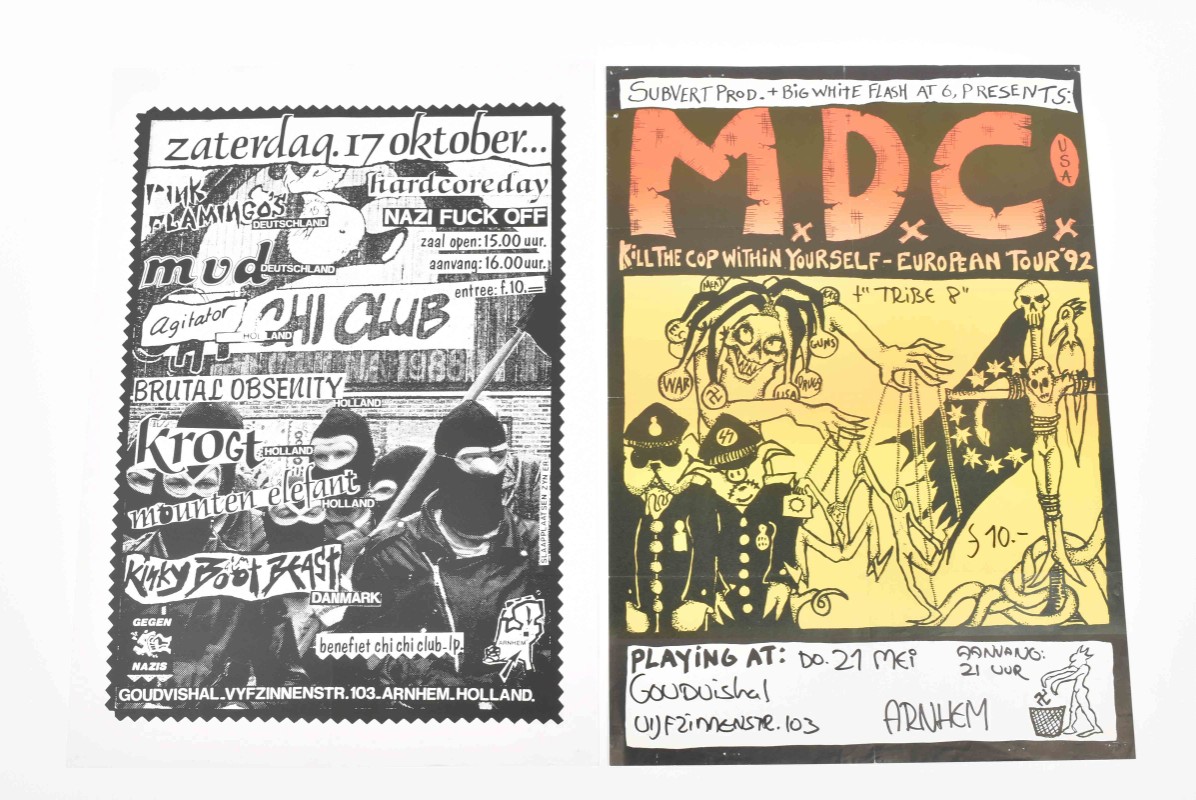 zaterdag.17 oktober...
hardcoreday
PINK
FLAMINGO'S
DEUTSCHLAND
NAZI FUCK OFF
zaal open:15.00 uur.
aanvang:16.00 uur.
mvd
DEUTSCHLAND
entree: f.10.=
agitator
CHI CLUB
HOLLAND
1988
BRUTAL OBSENITY
HOLLAND
krogt
HOLLAND
mounten elefant
HOLLAND
SLAAPPLAATSEN ZYN ER
KINKY BOOT BEAST
DANMARK
GEGEN
NAZIS
ARNHEM
benefiet chi chi club-lp.
GOUDVISHAL_VYFZINNENSTR.103_ARNHEM_HOLLAND.
SUBVERT PROD. + BIG WHITE FLASH AT 6, PRESENTS:
M.D.C.
USA
KILL THE COP WITHIN YOURSELF - EUROPEAN TOUR '92
+ "TRIBE 8"
MEAT
GUNS
WAR
DRUGS
USA
ƒ 10.-
PLAYING AT: DO. 21 MEI
AANVANG:
21 UUR
GOUDVISHAL
VIJFZINNENSTR. 103
ARNHEM